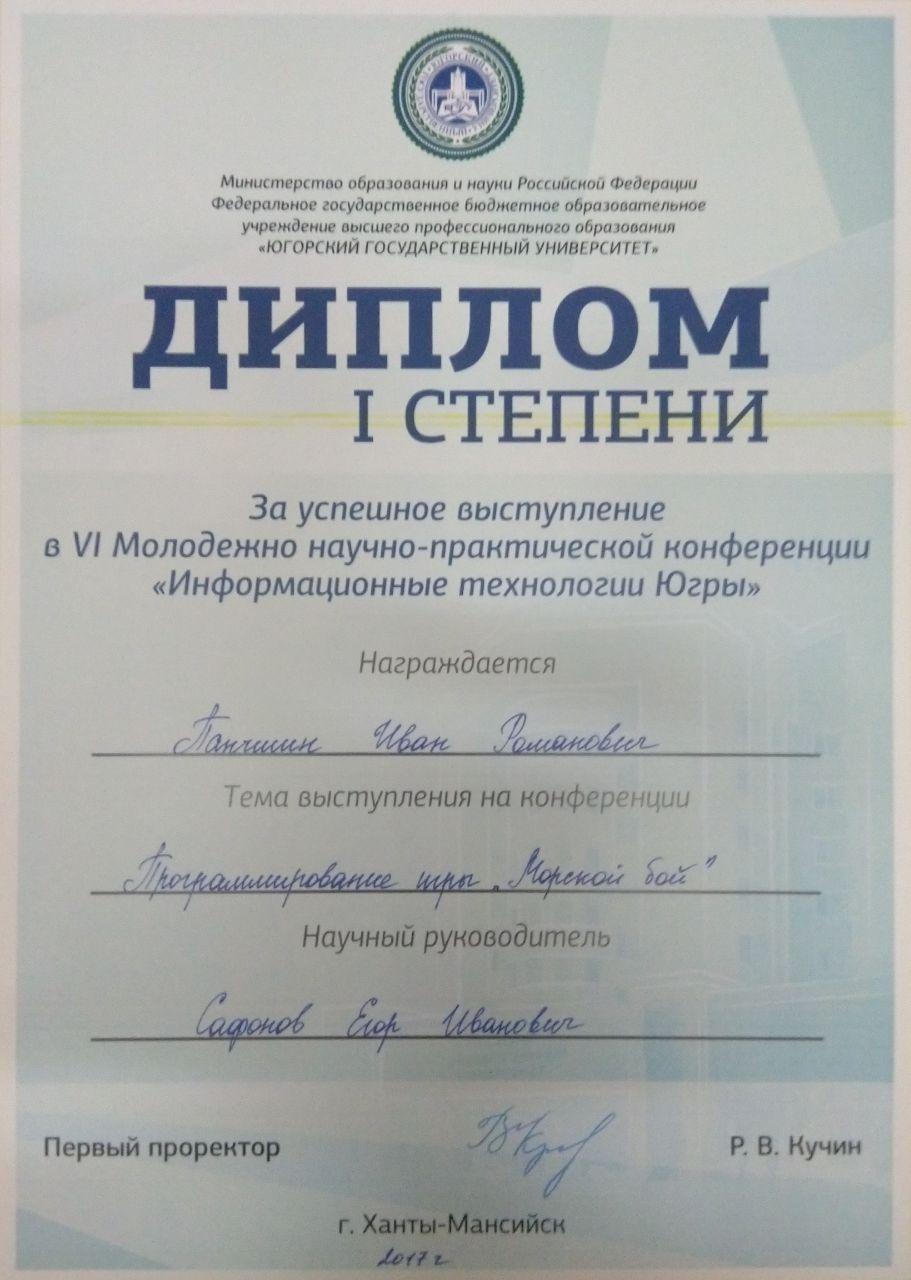 ЮГОРСКИЙ ГОСУДАРСТВЕННЫЙ УНИВЕРСИТЕТ
Министерство образования и науки Российской Федерации
Федеральное государственное бюджетное образовательное
учреждение высшего профессионального образования
«ЮГОРСКИЙ ГОСУДАРСТВЕННЫЙ УНИВЕРСИТЕТ»
ДИПЛОМ
I СТЕПЕНИ
За успешное выступление
в VI Молодежно научно-практической конференции
«Информационные технологии Югры»
Награждается
Панчишин Иван Романович
Тема выступления на конференции
Программирование игры „Морской бой"
Научный руководитель
Сафонов Егор Иванович
Первый проректор
Р. В. Кучин
г. Ханты-Мансийск
2017 г